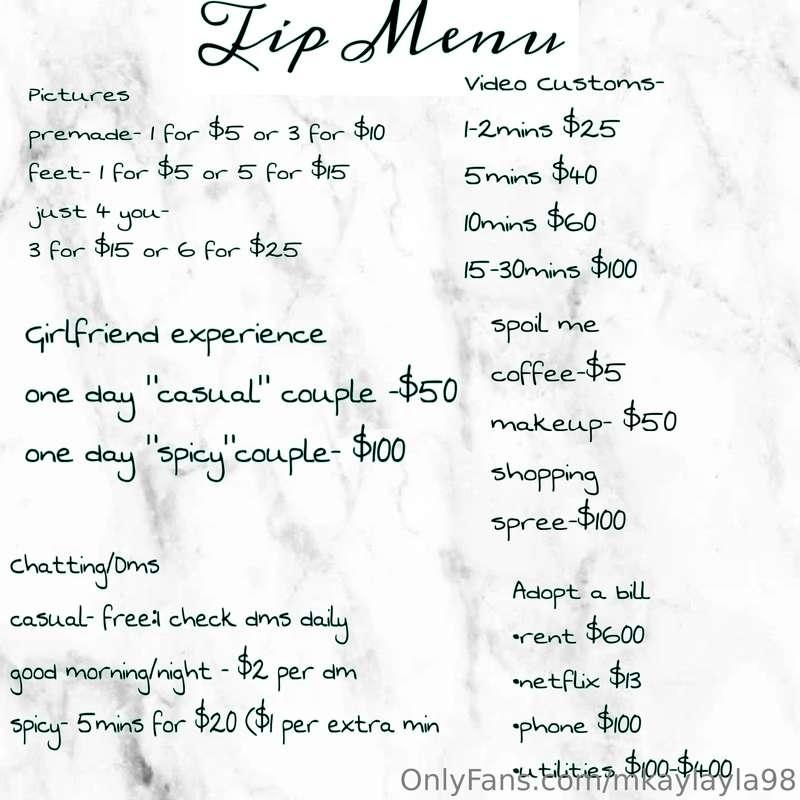 Tip Menu
Pictures
premade- 1 for $5 or 3 for $10
feet- 1 for $5 or 5 for $15
just 4 you-
3 for $15 or 6 for $25
Girlfriend experience
one day "casual" couple -$50
one day "spicy"couple- $100
Chatting/Dms
casual- free:I check dms daily
good morning/night - $2 per dm
spicy- 5mins for $20 ($1 per extra min
Video Customs-
1-2mins $25
5mins $40
10mins $60
15-30mins $100
spoil me
coffee-$5
makeup- $50
shopping
spree-$100
Adopt a bill
•rent $600
•netflix $13
•phone $100
•utilities $100-$400
OnlyFans.com/mkaylayla98